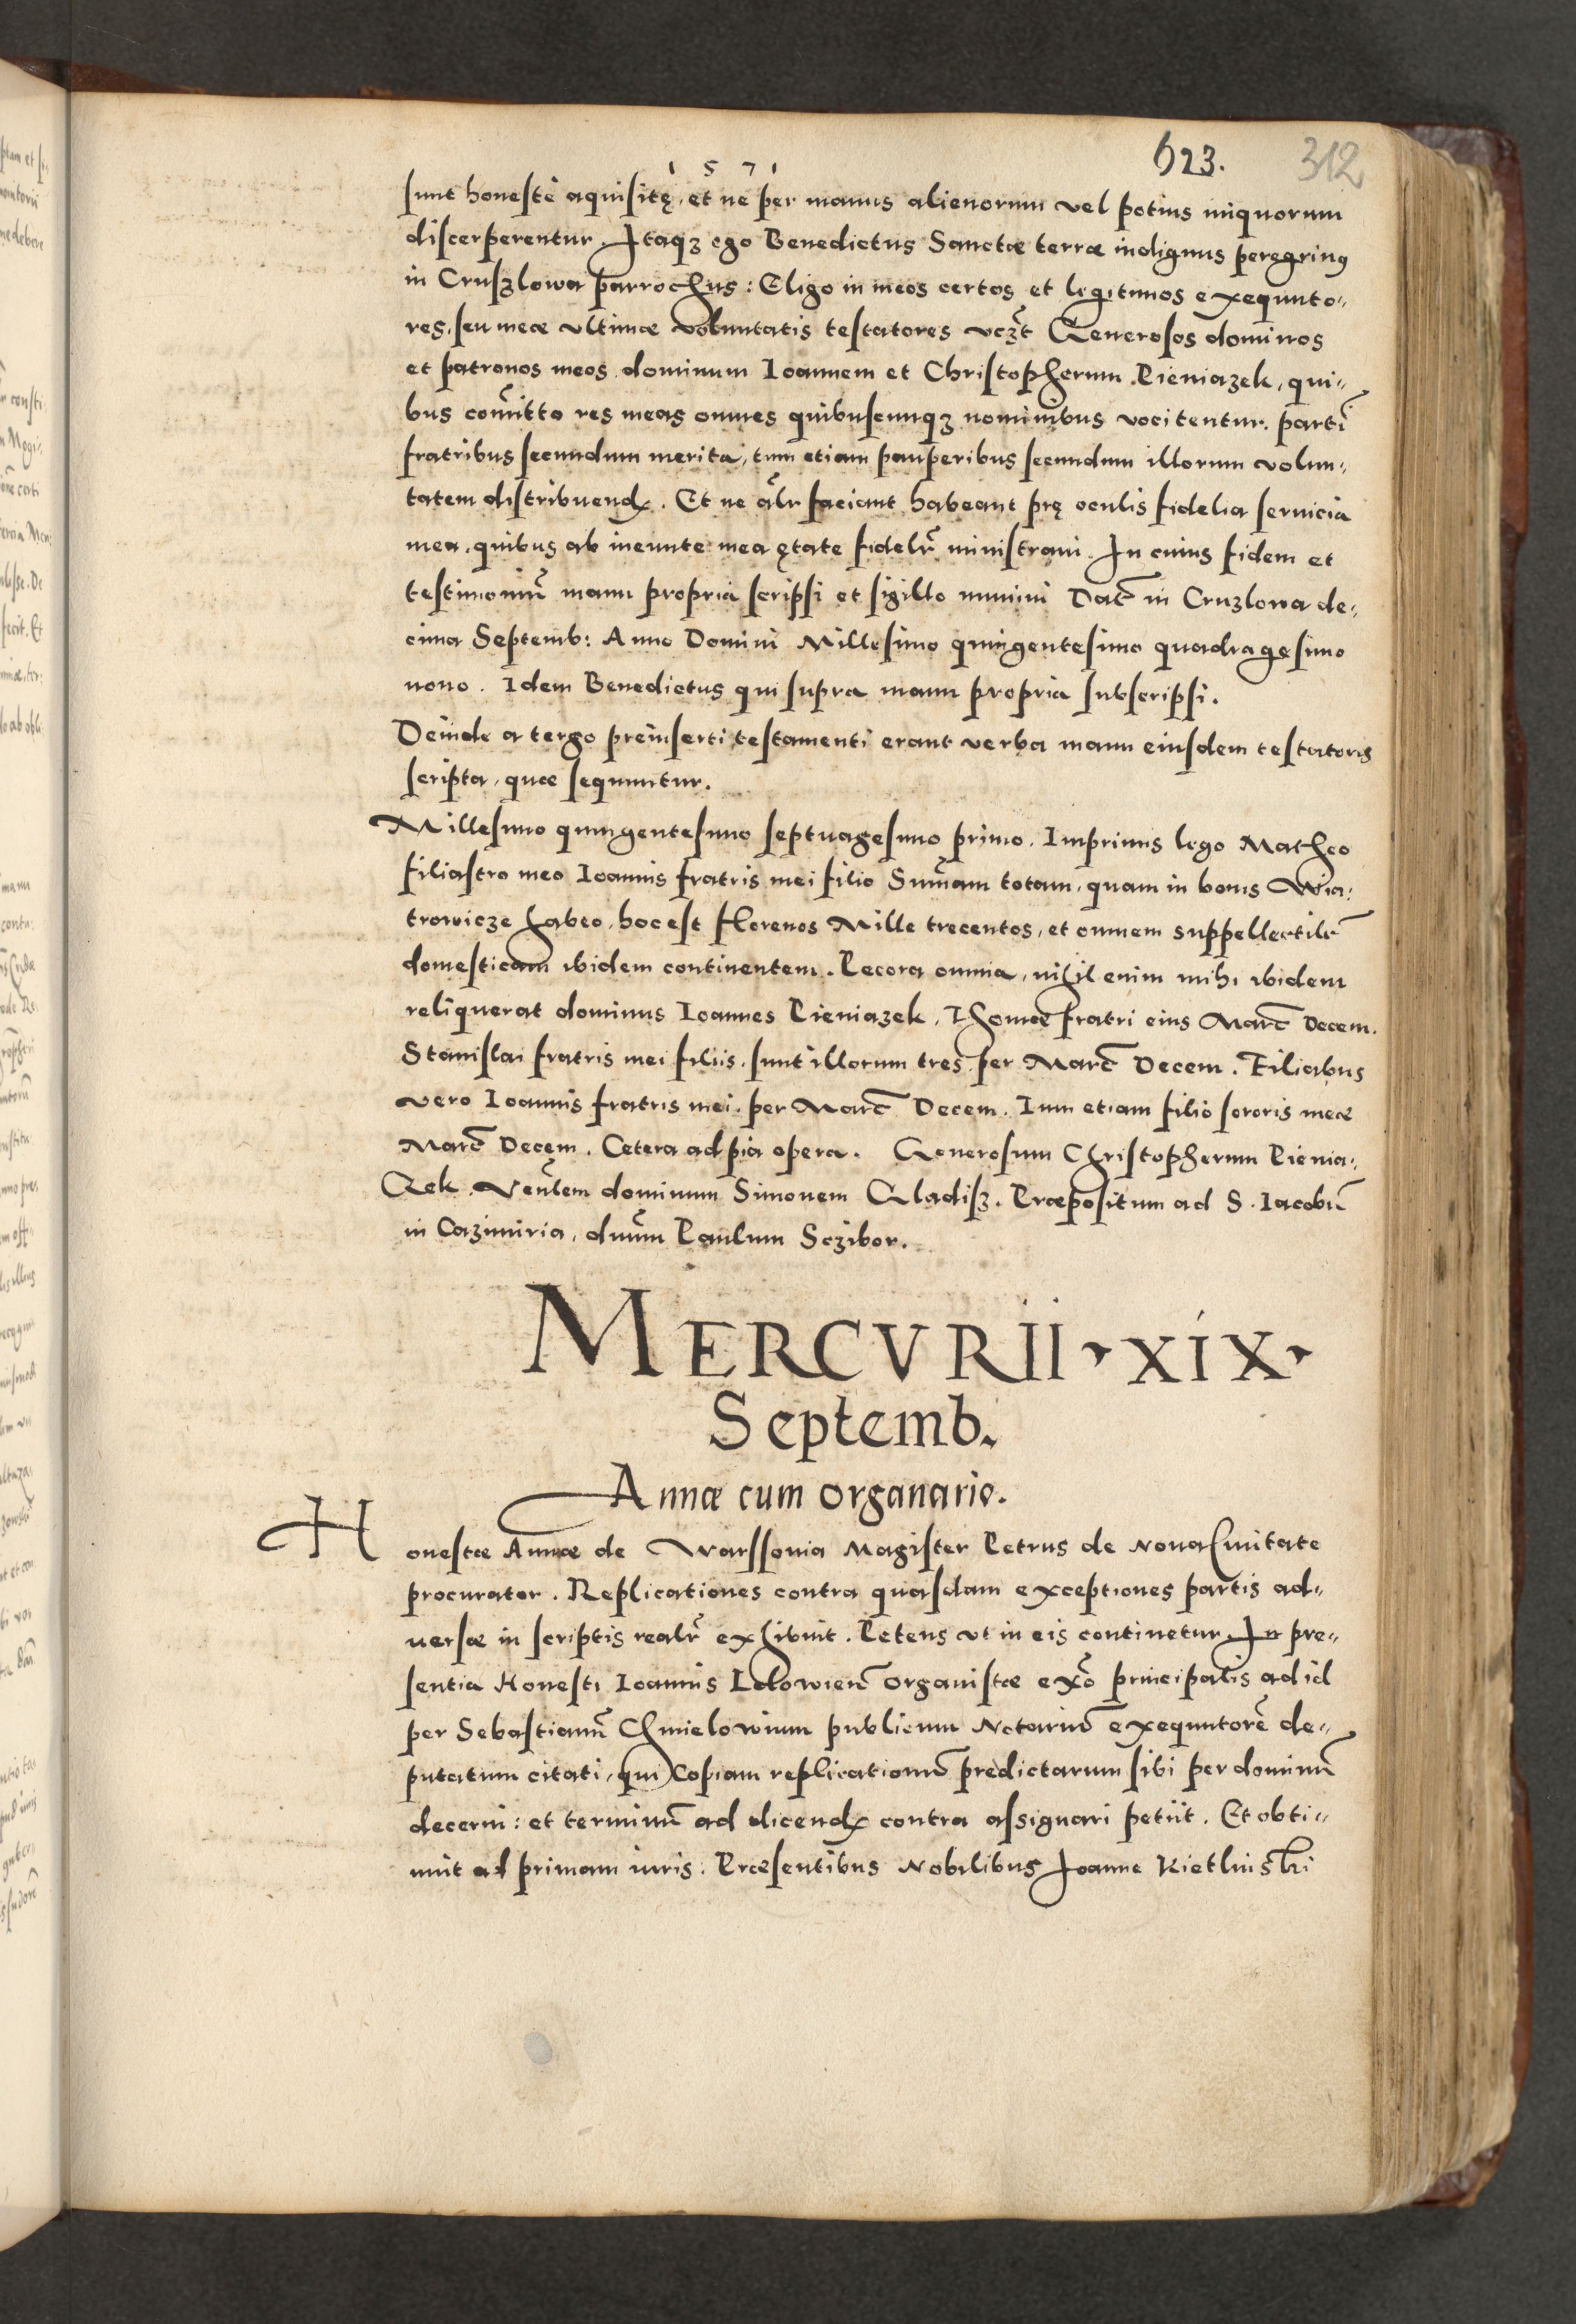 1 5 7 1
623. 312
sunt honeste aquisitę, et ne per manus alienorum vel potius iniquorum
discerperentur. Itaqꝫ ego Benedictus Sanctæ terræ indignus peregrinꝰ
in Cruszlowa parrochus: Eligo in meos certos et legitimos exequuto„
res, seu meæ ultimæ voluntatis testatores vcꝫt Generosos dominos
et patronos meos dominum Ioannem et Christopherum Pieniazek, qui„
bus com̃itto res meas omnes quibuscunqꝫ nominibus vocitentur. parti᷃
fratribus secundum merita, tum etiam pauperibus secundum illorum volun„
tatem distribuendꝭ. Et ne alr̃ faciant habeant prę oculis fidelia seruicia
mea, quibus ab ineunte mea ętate fidelr̃ ministraui. In cuius fidem et
testimoniũ manu propria scripsi et sigillo muniui Datꝭ in Cruzlowa de„
cima Septemb: Anno Domini Millesimo quingentesimo quadragesimo
nono. Idem Benedictus qui supra manu propria subscripsi.
Deinde a tergo preinserti testamenti erant verba manu eiusdem testatoris
scripta, quæ sequuntur.
Millesimo quingentesimo septuagesimo primo. Imprimis lego Matheo
filiastro meo Ioannis fratris mei filio Sum̃am totam, quam in bonis Wia„
trowicze habeo, hoc est florenos Mille trecentos, et omnem suppellectilẽ
domesticam ibidem continentem. Pecora omnia, nihil enim mihi ibidem
reliquerat dominus Ioannes Pieniazek, Thomæ fratri eius Marc̃ Decem.
Stanislai fratris mei filiis, sunt illorum tres, per Marc̃ Decem. Filiabus
vero Ioannis fratris mei, per Marc̃ Decem. Tum etiam filio sororis meæ
Marc̃ Decem. Cetera ad pia opera. Generosum Christopherum Pienia„
Zek. Venlem̃ dominum Simonem Gladisz. Præpositum ad S. Iacobũ
in Cazimiria, dnũm Paulum Sczibor.
MERCVRII · XIX ·
Septemb.
Annæ cum organario.
Honestæ Annæ de Warssouia Magister Petrus de Noua Ciuitate
procurator. Replicationes contra quasdam exceptiones partis ad„
uersæ in scriptis realr̃ exhibuit. Petens ut in eis continetur. In pre„
sentia Honesti Ioannis Ldowieñ organistæ ex᷃o principalis ad id
per Sebastianũ Chmielowium publicum Notariũ exequutorẽ de„
putatum citati, qui Copiam replicationũ predictarum sibi per dominũ
decerni: et terminũ ad dicendꝭ contra assignari petiit. Et obti„
nuit ad primam iuris. Præsentibus Nobilibus Ioanne Kietlinski